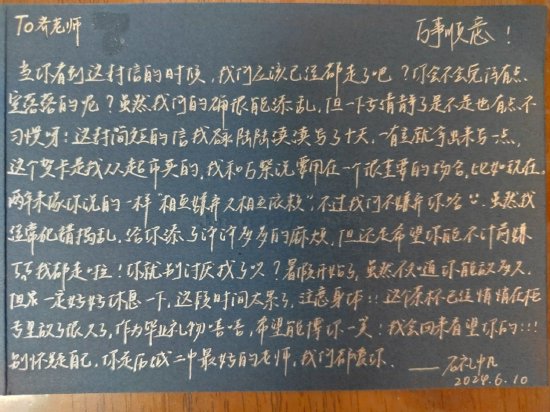 To 乔老师
万事顺意！
当你看到这封信的时候，我们应该已经都走了吧？你会不会觉得有点
空落落的呢？虽然我们的确很能添乱，但一下子清静了是不是也有点不
习惯呀！这封简短的信我陆陆续续写了十天，有空就拿出来写一点，
这个贺卡是我从超市买的，我和说要用在一个很重要的场合，比如现在。
两年来像你说的一样"相互嫌弃又相互依赖"，不过我们不嫌弃你哈。虽然我
经常花精搞乱，给你添了许许多多的麻烦，但还是希望你能不计前嫌
我都走啦！你就别讨厌我了呗？暑假开始了，虽然不知道你能放多久，
但是一定好好休息一下，这段时间太累了，注意身体！！这个茶杯已经悄悄在柜
里放了很久了，作为毕业礼物嘻嘻，希望能博你一笑！我会回来看望你的！！！
别怀疑自己，你是历城二中最好的老师，我们都爱你。——
2024.6.10